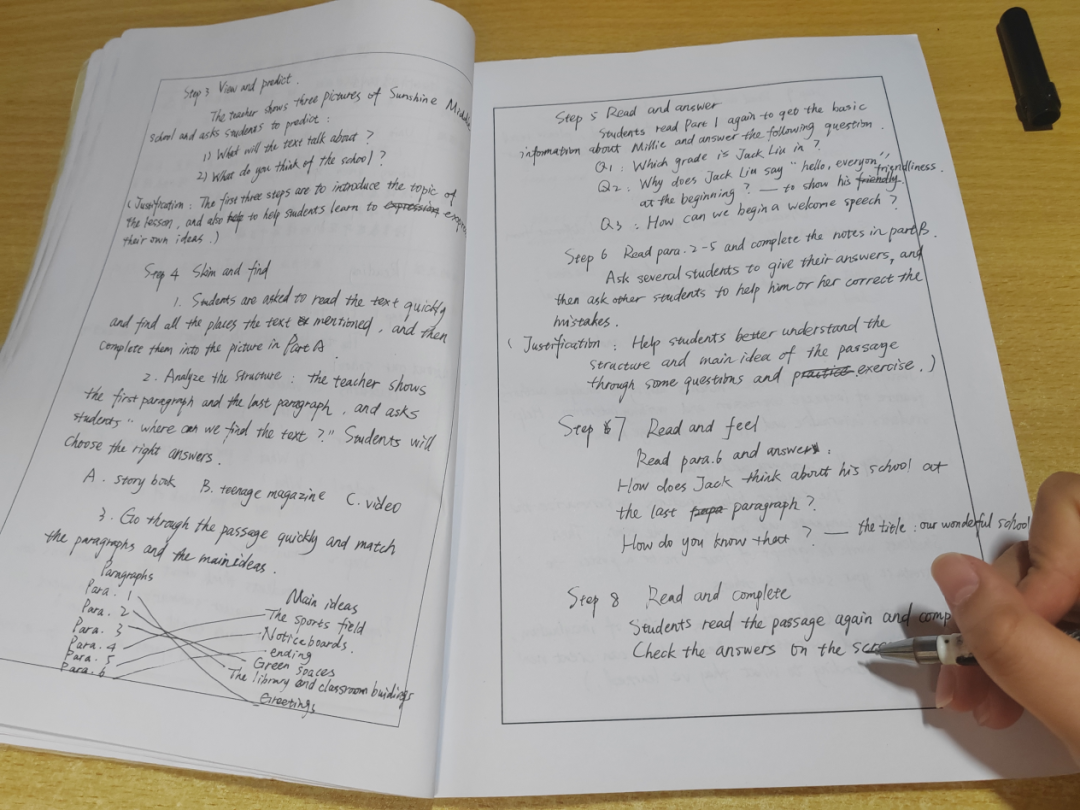 Step 3 View and predict.
The teacher shows three pictures of Sunshine Middle
school and asks students to predict:
1) What will the text talk about?
2) What do you think of the school?
(Justification: The first three steps are to introduce the topic of
the lesson, and also help to help students learn to expression
their own ideas.)
Step 4 Skim and find
1. Students are asked to read the text quickly
and find all the places the text mentioned, and then
complete them into the picture in Part A.
2. Analyze the structure: the teacher shows
the first paragraph and the last paragraph, and asks
students "where can we find the text?" Students will
choose the right answers.
A. story book B. teenage magazine C. video
3. Go through the passage quickly and match
the paragraphs and the main ideas.
Paragraphs
Para. 1
Para. 2
Para. 3
Para. 4
Para. 5
Para. 6
Main ideas
The sports field
Noticeboards.
ending
Green spaces
The library and classroom buidings
Greetings
Step 5 Read and answer
Students read Part 1 again to get the basic
information about Millie and answer the following question.
Q1: Which grade is Jack Liu in?
Q2: Why does Jack Liu say "hello, everyon",
at the beginning? — to show his friendly friendliness.
Q3: How can we begin a welcome speech?
Step 6 Read para. 2-5 and complete the notes in part B.
Ask several students to give their answers, and
then ask other students to help him or her correct the
mistakes.
(Justification: Help students better understand the
structure and main idea of the passage
through some questions and practice exercise.)
Step 7 Read and feel
Read para.6 and answer:
How does Jack think about his school at
the last paragraph?
How do you know that? — the title: our wonderful school
Step 8 Read and complete
Students read the passage again and comp
Check the answers on the scre